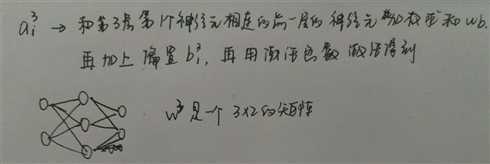 a₁³ → 和第3层第1个神经元相连的前一层的神经元加权求和wb.
再加上偏置b₁³，再用激活函数激活得到
w³是一个3×2的矩阵